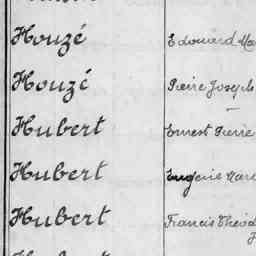 Houzé Edouard Ma
Houzé Pierre Joseph
Hubert Ernest Pierre
Hubert Eugénie Mari
Hubert Francis Théod
Hubert